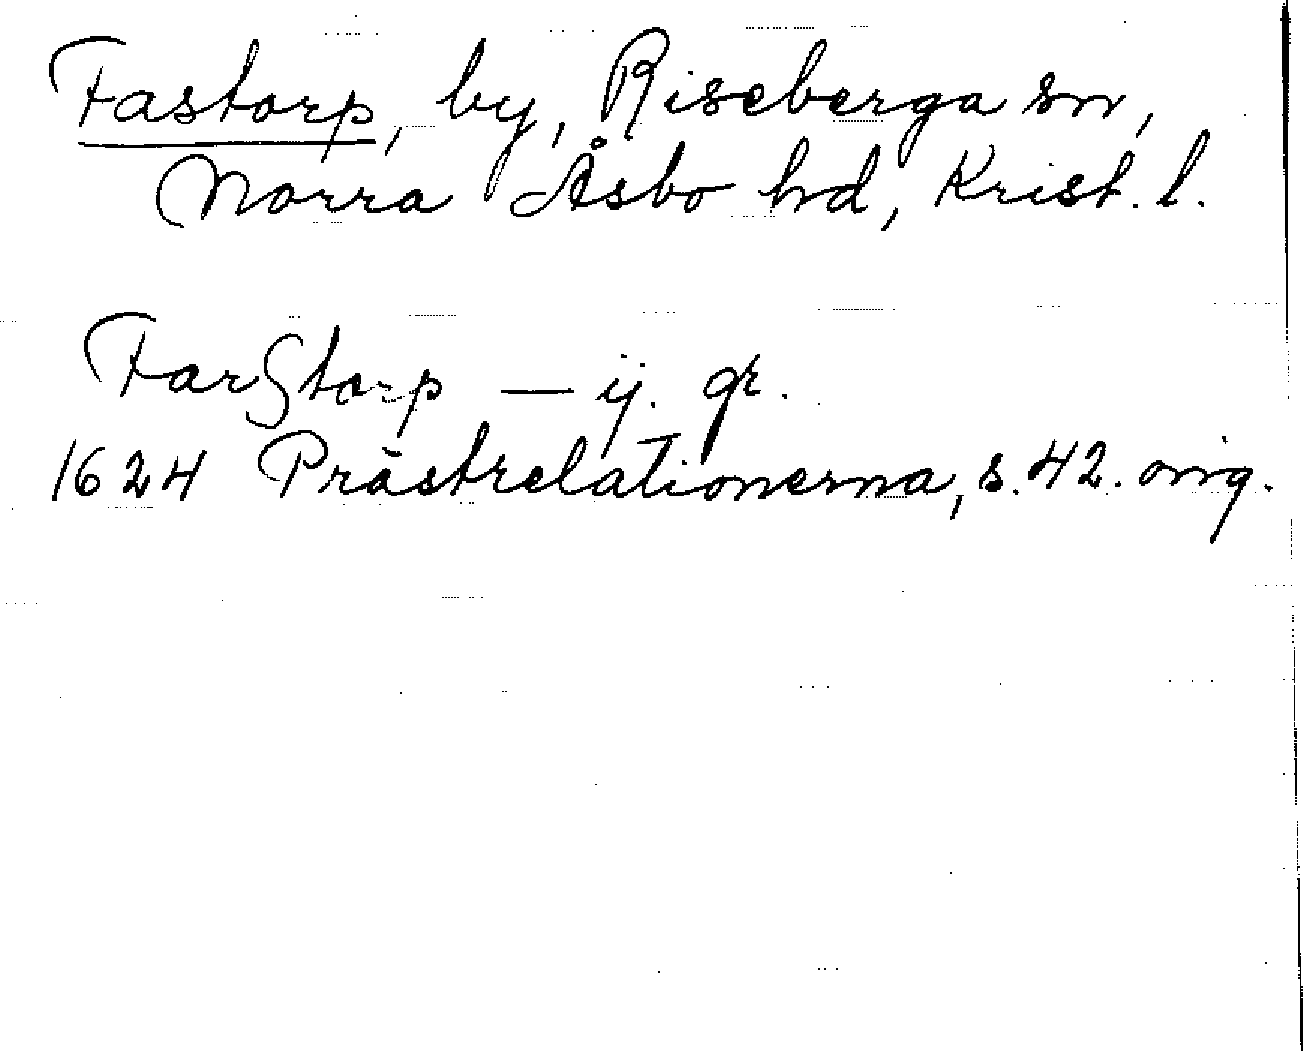 Fastorp, by, Riseberga sn,
Norra Åsbo hd, Krist. l.
Farstorp — ij. gr.
1624 Prästrelationerna, s. 42. orig.